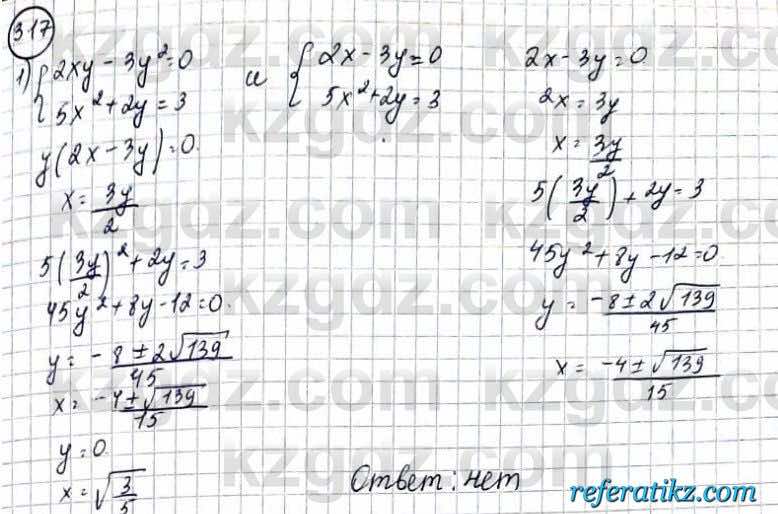 317
1) { 2xy - 3y² = 0
5x² + 2y = 3
и { 2x - 3y = 0
5x² + 2y = 3
y(2x - 3y) = 0.
x = 3y/2
5(3y/2)² + 2y = 3
45y² + 8y - 12 = 0.
y = -8 ± 2√139/45
x = -4 ± √139/15
y = 0
x = √3/5
2x - 3y = 0
2x = 3y
x = 3y/2
5(3y/2) + 2y = 3
45y² + 8y - 12 = 0
y = -8 ± 2√139/45
x = -4 ± √139/15
Ответ: нет
kzgdz.com
referatikz.com